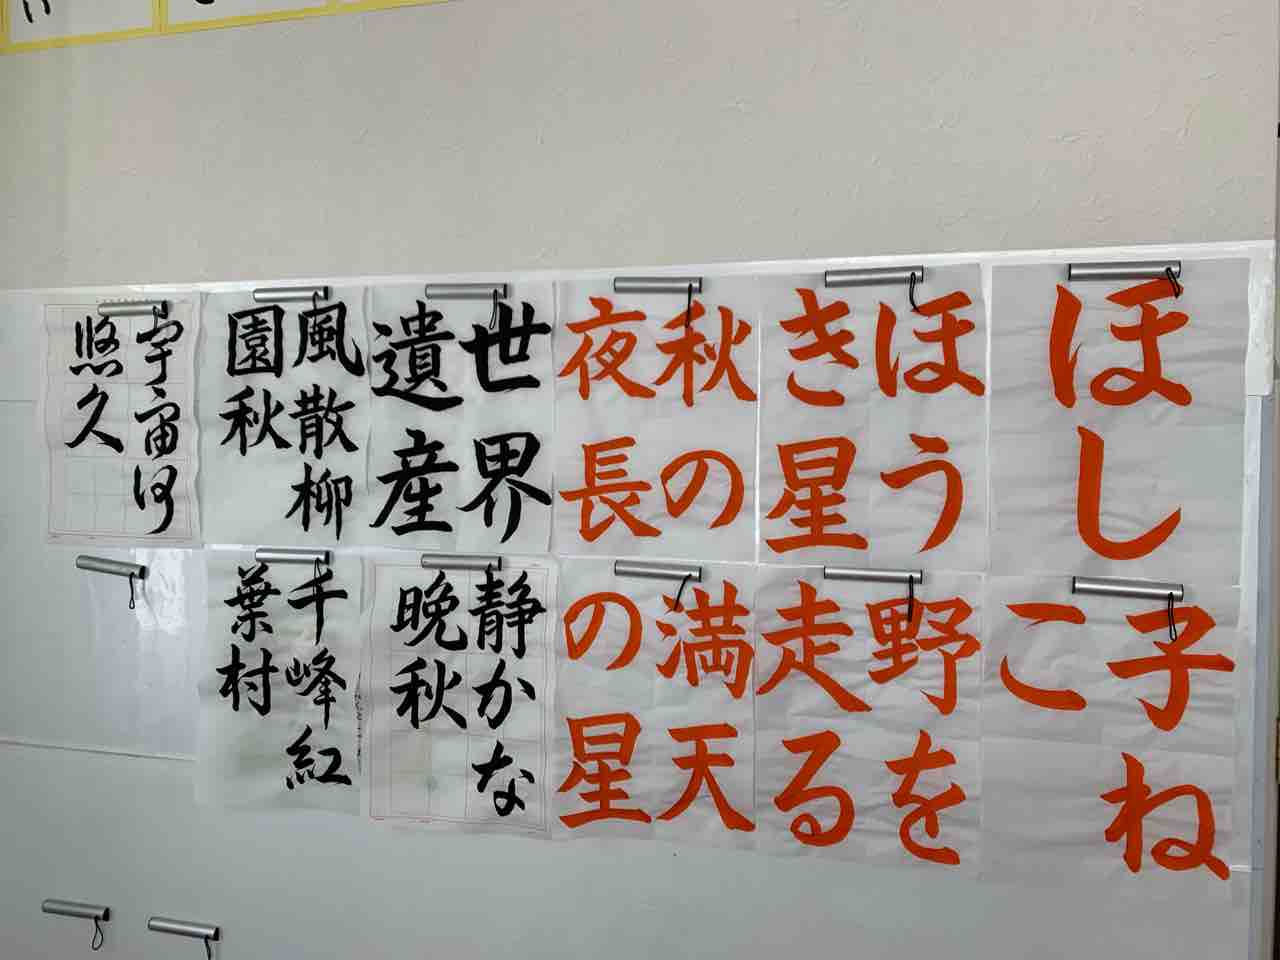 ほし
子ね
こ
ほう
き星
野を
走る
秋の
夜長
満天
の星
世界
遺産
静かな
晩秋
風散柳
園秋
千峰紅
葉村
宇宙何
悠久
い